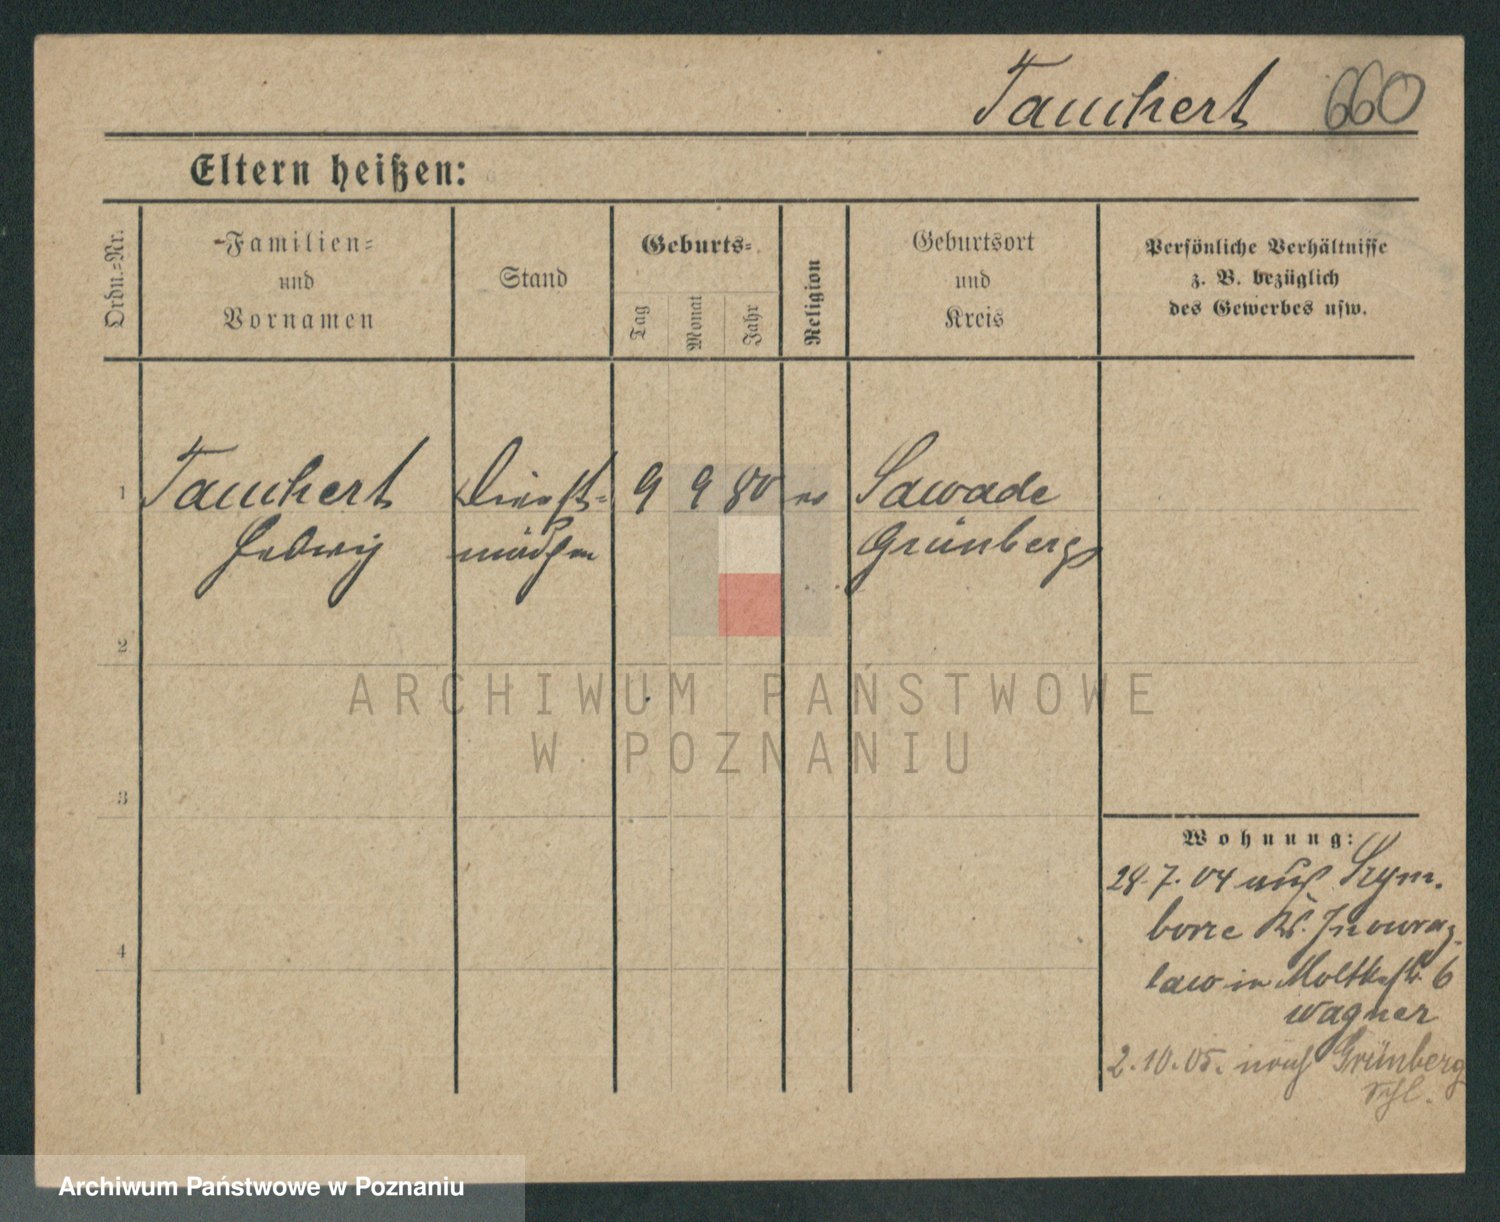 Tauchert 660
Eltern heißen:
Ordn.=Nr.
Familien=
und
Vornamen
Stand
Geburts=
Tag
Monat
Jahr
Religion
Geburtsort
und
Kreis
Persönliche Verhältnisse
z. B. bezüglich
des Gewerbes usw.
1 Tauchert Dienst= 9 9 80 ev Sawade
Hedwig mädchen Grünberg
2
ARCHIWUM PAŃSTWOWE
W POZNANIU
3
Wohnung:
28.7.04 aus Szym.
borze Kr. Inowraz.
4
law in Moltkestr. 6
Wagner
2.10.05. nach Grünberg
Schl.
Archiwum Państwowe w Poznaniu